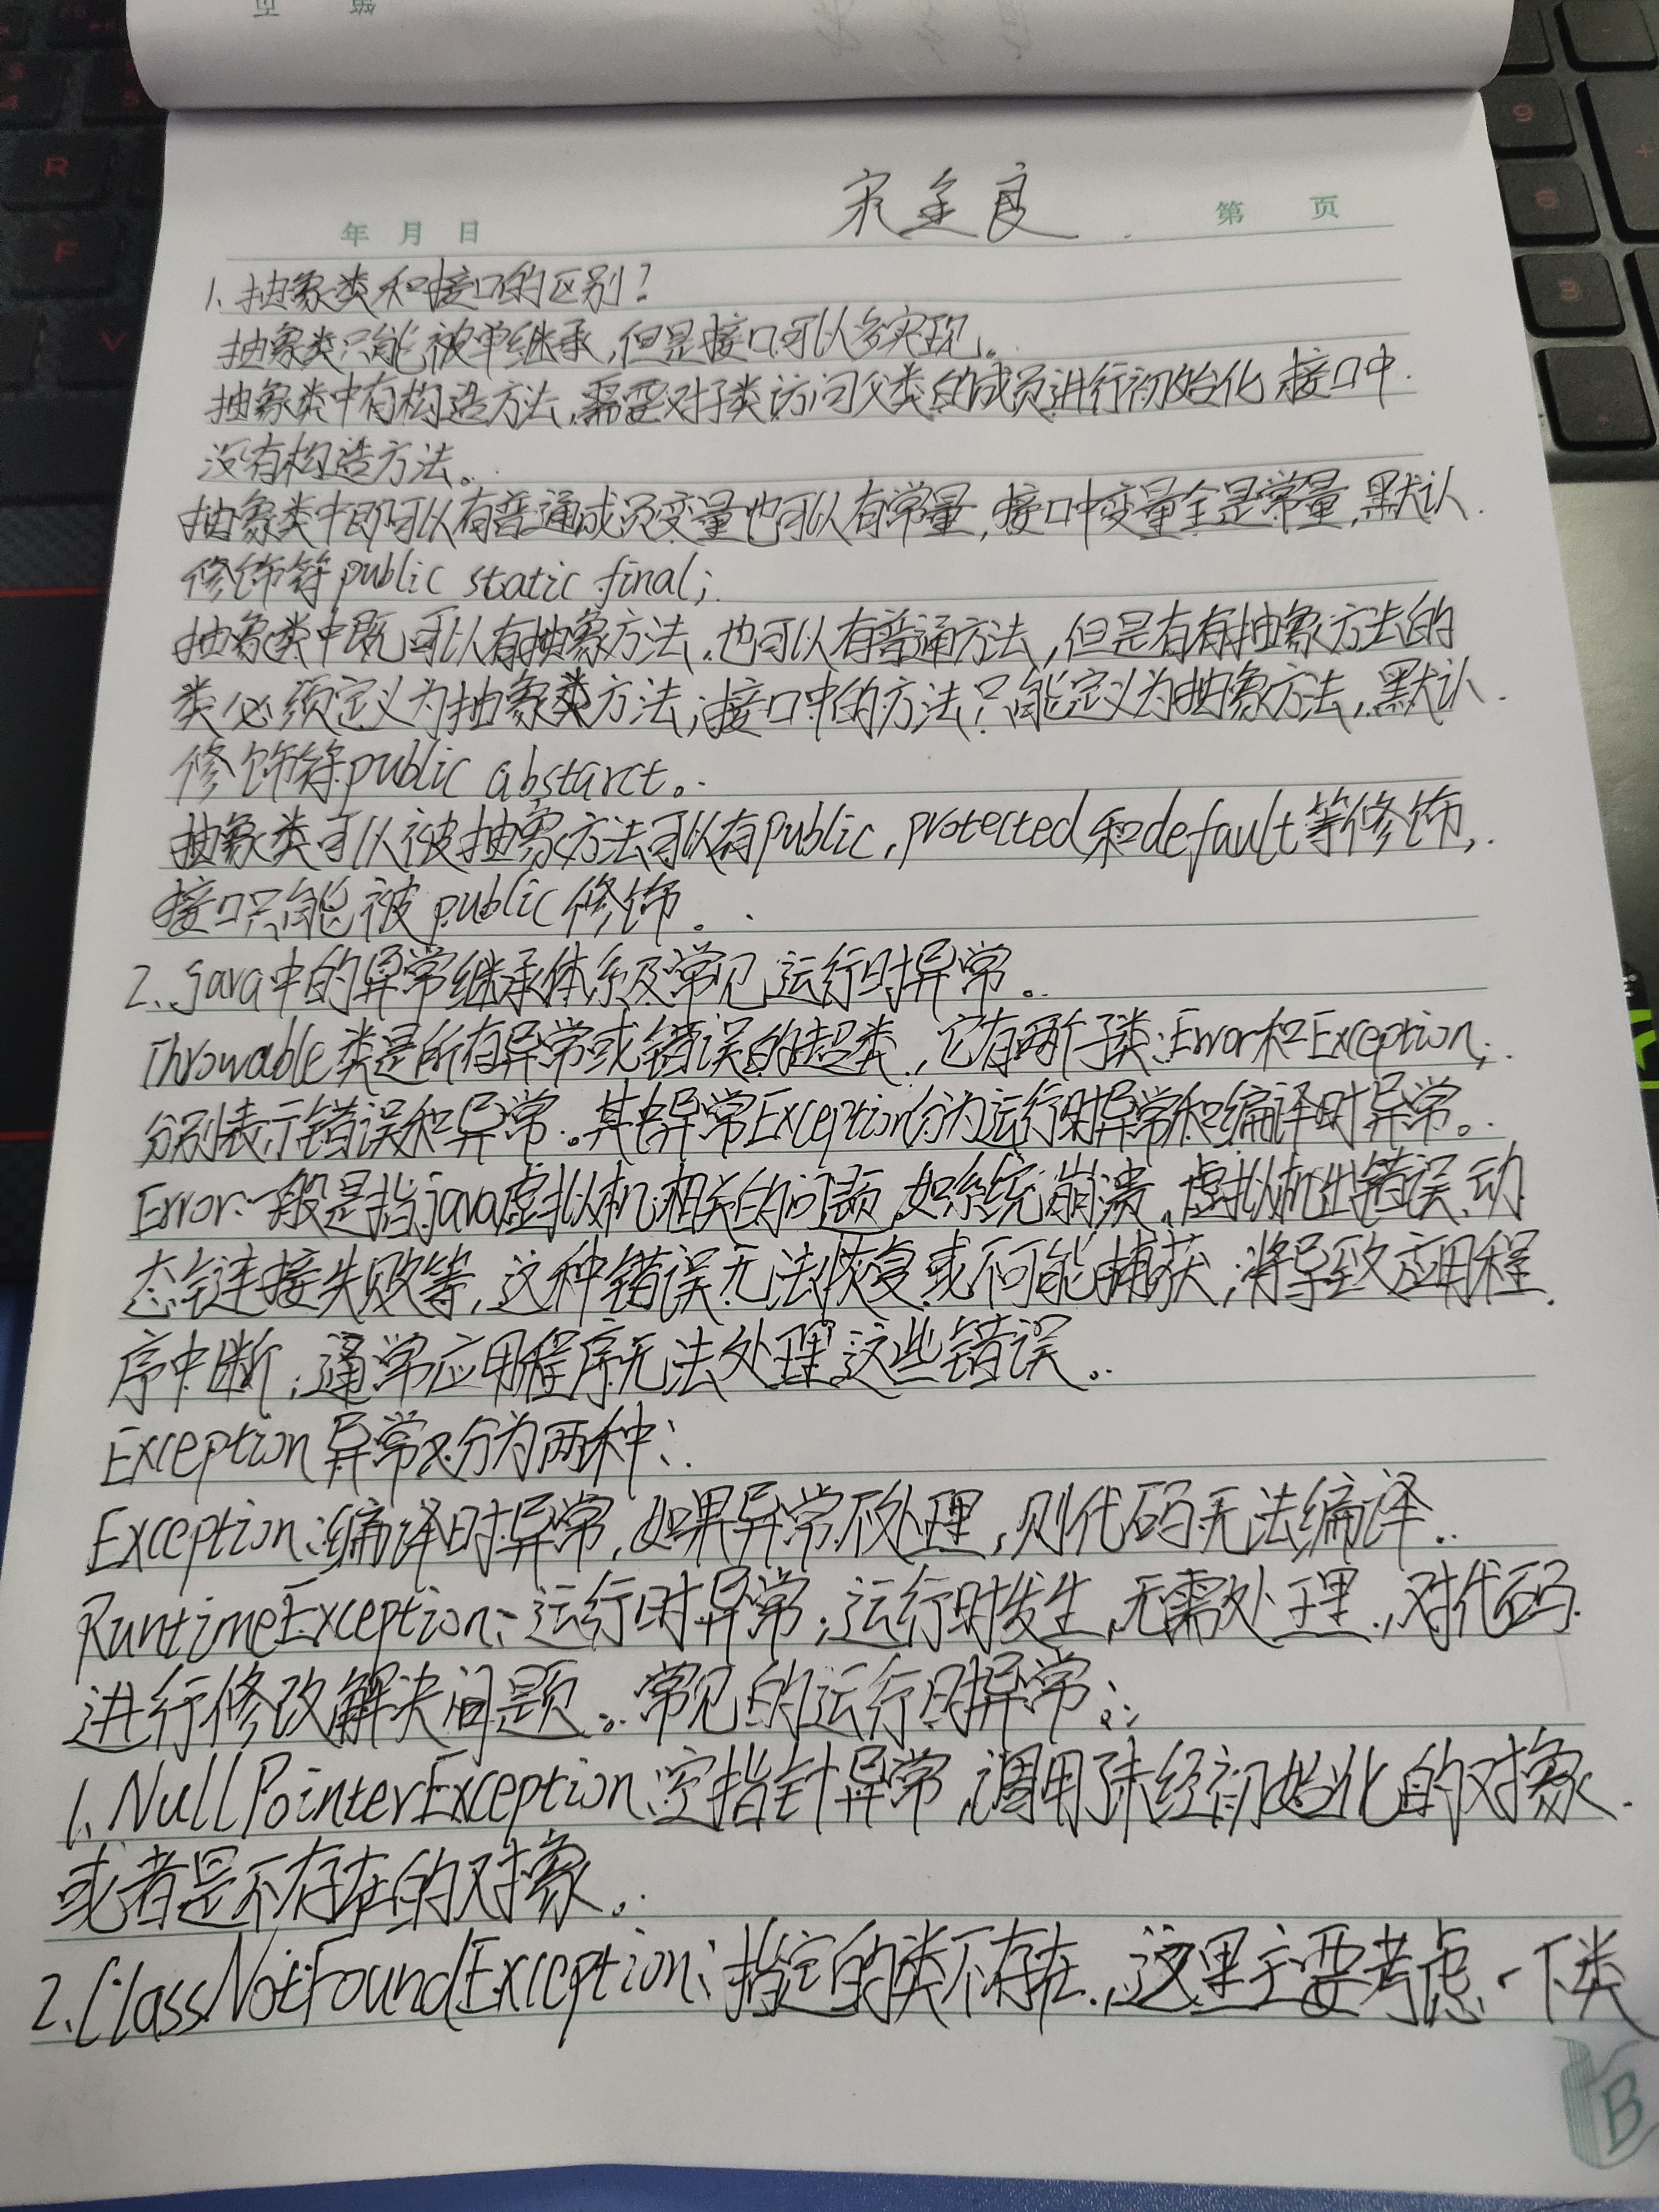 宋全良
年 月 日 第 页
1.抽象类和接口的区别?
抽象类只能被单继承,但是接口可以多实现。
抽象类中有构造方法,需要对子类访问父类的成员进行初始化 接口中
没有构造方法。
抽象类中即可以有普通成员变量也可以有常量,接口中变量全是常量,默认
修饰符public static final;
抽象类中既可以有抽象方法,也可以有普通方法,但是有有抽象方法的
类必须定义为抽象类方法;接口中的方法只能定义为抽象方法,默认
修饰符public abstarct。
抽象类可以被抽象方法可以有public,protected和default等修饰,
接口只能被public修饰。
2.java中的异常继承体系及常见运行时异常。
Throwable类是所有异常或错误的超类,它有两个子类:Error和Exception,
分别表示错误和异常。其中异常Exception分为运行时异常和编译时异常。
Error:一般是指java虚拟机相关的问题,如系统崩溃,虚拟机出错误,动
态链接失败等,这种错误无法恢复或不可能捕获,将导致应用程
序中断,通常应用程序无法处理这些错误。
Exception异常又分为两种:
Exception:编译时异常,如果异常不处理,则代码无法编译.
RuntimeException:运行时异常,运行时发生,无需处理,对代码
进行修改解决问题。常见的运行时异常:
1.NullPointerException:空指针异常,调用了未经初始化的对象
或者是不存在的对象。
2.ClassNotFoundException:指定的类不存在,这里主要考虑一下类
B